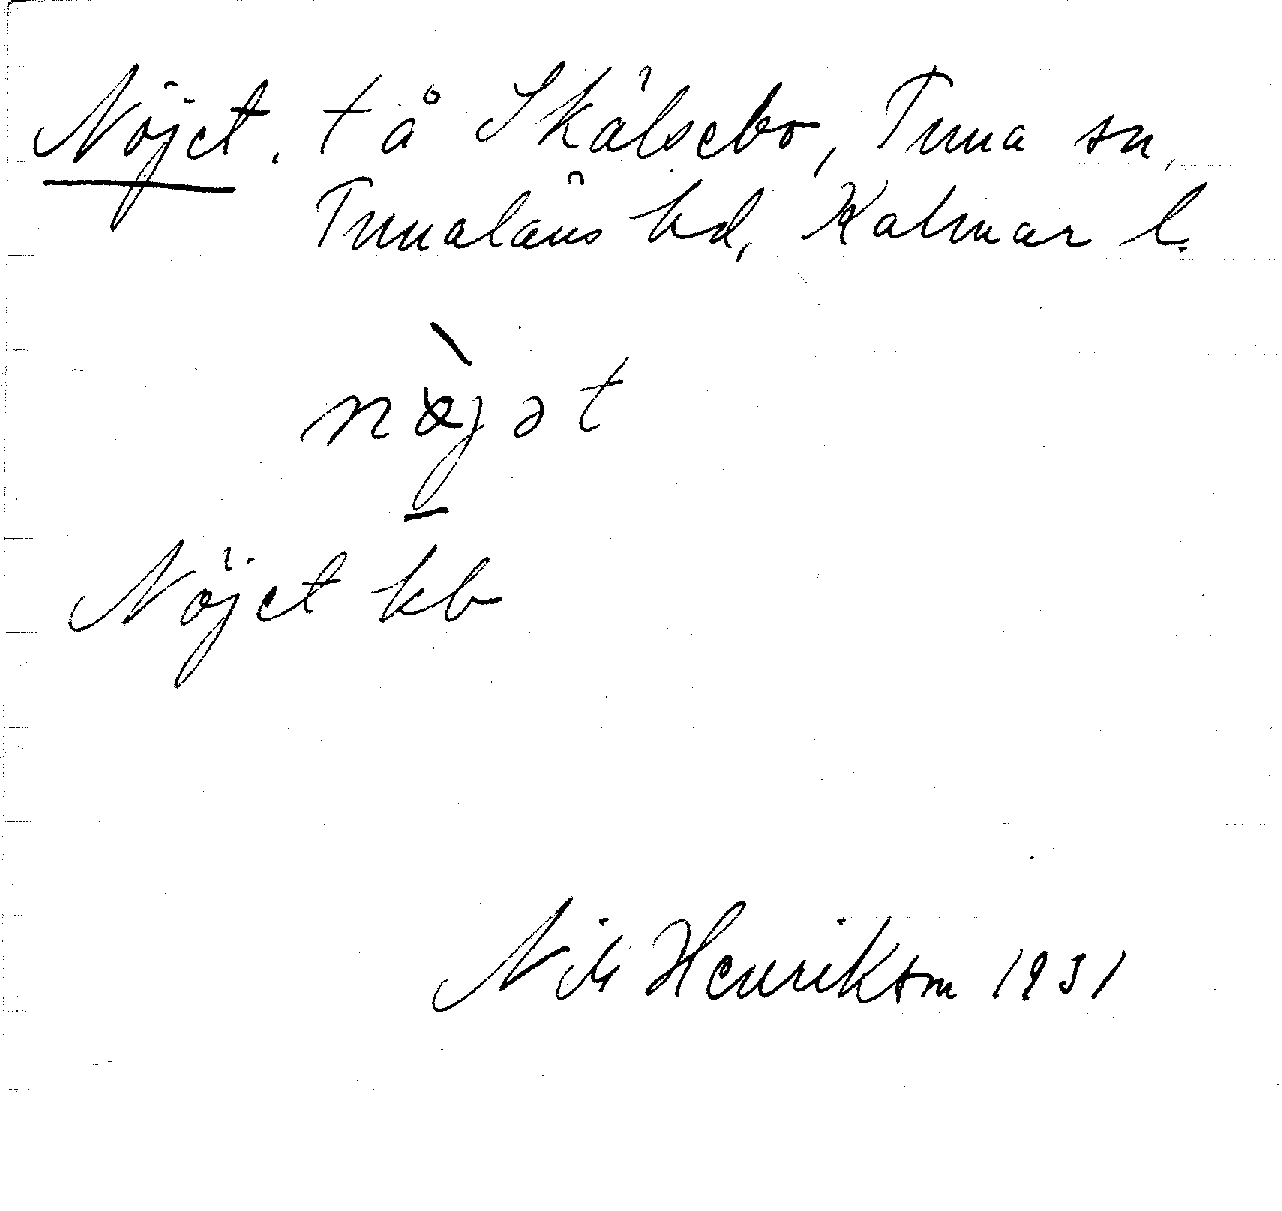 Nöjet. t å Skälsebo, Tuna sn,
Tunaläns hd, Kalmar l.
nø̀jət
Nöjet kb
Nils Henrikson 1931